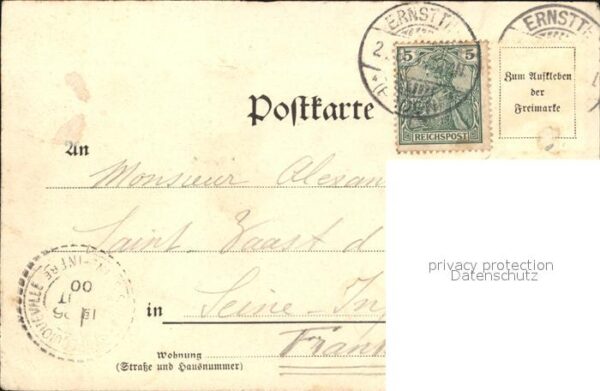 ERNSTTH
ERNSTTH
2.
5 5
REICHSPOST
Zum Aufkleben
der
Freimarke
Postkarte
An
Monsieur Alexan
Saint-Vaast d
in Seine-Inf
France
Wohnung
(Straße und Hausnummer)
privacy protection
Datenschutz